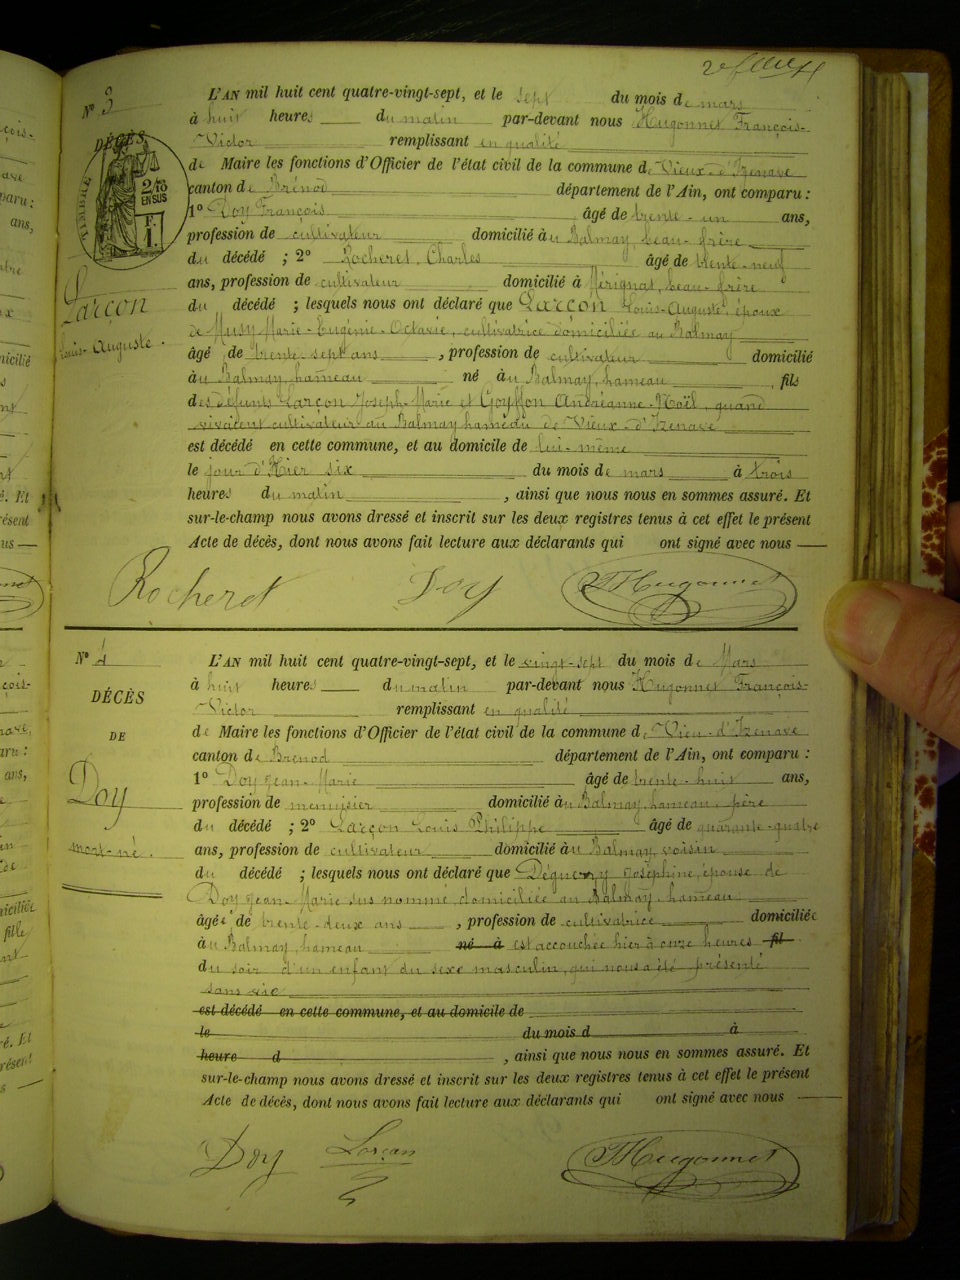 2e feuillet
N° 3
DÉCÈS
TIMBRE
2/10
EN SUS
F.
1.
Larçon
Louis-Auguste.
L'AN mil huit cent quatre-vingt-sept, et le sept du mois de mars
à huit heures du matin par-devant nous Hugonnet François-
Victor remplissant en qualité
de Maire les fonctions d'Officier de l'état civil de la commune de Vieux-d'Izenave
canton de Brénod département de l'Ain, ont comparu :
1° Doy François âgé de trente-un ans,
profession de cultivateur domicilié au Balmay, beau-frère
du décédé ; 2° Rocheret, Charles âgé de trente-neuf
ans, profession de cultivateur domicilié à Mérignat, beau-frère
du décédé ; lesquels nous ont déclaré que Larçon Louis-Auguste, époux
de Musy Marie-Eugénie-Octavie, cultivatrice domiciliée au Balmay
âgé de trente-sept ans, profession de cultivateur domicilié
à u Balmay, hameau né à u Balmay, hameau, fils
des défunts Larçon Joseph-Marie et Goyffon Andréanne-Noël, quand
vivaient cultivateur au Balmay hameau de Vieux-d'Izenave
est décédé en cette commune, et au domicile de lui-même
le jour d'Hier six du mois de mars à trois
heures du matin, ainsi que nous nous en sommes assuré. Et
sur-le-champ nous avons dressé et inscrit sur les deux registres tenus à cet effet le présent
Acte de décès, dont nous avons fait lecture aux déclarants qui ont signé avec nous
Rocheret Doy Hugonnet
N° 4
DÉCÈS
DE
Doy
mort-né.
L'AN mil huit cent quatre-vingt-sept, et le vingt-sept du mois de Mars
à huit heures du matin par-devant nous Hugonnet François-
Victor remplissant en qualité
de Maire les fonctions d'Officier de l'état civil de la commune de Vieu-d'Izenave
canton de Brénod département de l'Ain, ont comparu :
1° Doy Jean-Marie âgé de trente-huit ans,
profession de menuisier domicilié au Balmay, hameau, père
du décédé ; 2° Larçon Louis Philippe âgé de quarante-quatre
ans, profession de cultivateur domicilié au Balmay, voisin
du décédé ; lesquels nous ont déclaré que Déguerry Joséphine, épouse de
Doy Jean-Marie sus nommé domiciliée au Balmay, hameau
âgée de trente-deux ans, profession de cultivatrice domiciliée
à u Balmay, hameau né à est accouchée hier à onze heures fil
du soir d'un enfant du sexe masculin, qui nous a été présenté
sans vie
est décédé en cette commune, et au domicile de
le du mois d à
heure d, ainsi que nous nous en sommes assuré. Et
sur-le-champ nous avons dressé et inscrit sur les deux registres tenus à cet effet le présent
Acte de décès, dont nous avons fait lecture aux déclarants qui ont signé avec nous
Doy Larçon Hugonnet